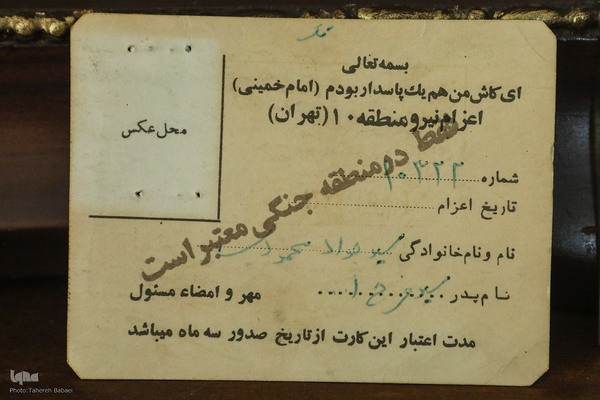 بسمه تعالی
ای کاش من هم یك پاسدار بودم (امام خمینی)
اعزام نیرو منطقه ۱۰ (تهران)
محل عکس
شماره ۱۰۳۲۲
تاریخ اعزام
فقط در منطقه جنگی معتبر است
نام و نام خانوادگی سید جواد
نام پدر سید
مهر و امضاء مسئول
مدت اعتبار این کارت از تاریخ صدور سه ماه میباشد
ایکنا
Photo:Tahereh Babaei